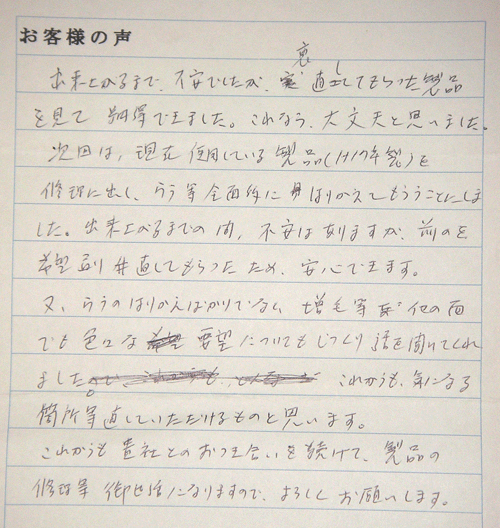 お客様の声
出来上がるまで、不安でしたが、裏 直してもらった製品
を見て 納得できました。これなら、大丈夫と思いました。
次回は、現在使用している製品(H17年製)を
修理に出し、うら等全面的に はりかえてもらうことにしま
した。出来上がるまでの間、不安はありますが、前のを
希望通り 直してもらったため、安心できます。
又、うらのはりかえばかりでなく 増毛等 他の面
でも色々な 要望についてもじっくり話を聞いてくれ
ました。 これからも、気になる
箇所等直していただけるものと思います。
これからも貴社とのおつき合いを続けて、製品の
修理等 御世話になりますので、よろしくお願いします。